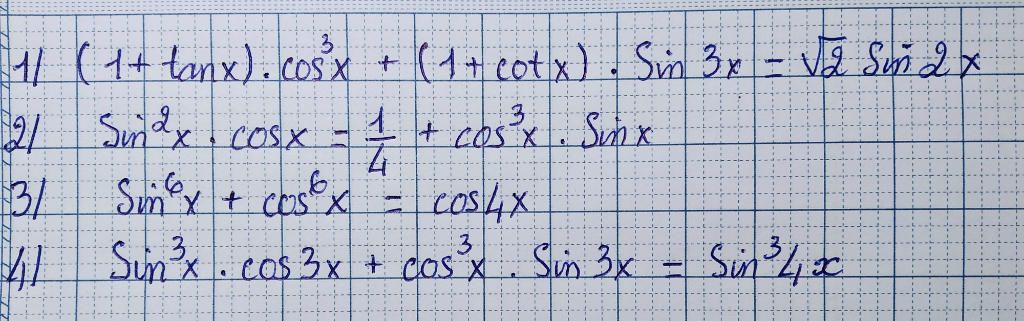 1/ (1 + tanx). cos³x + (1 + cotx). Sin 3x = √2 Sin 2x
2/ Sin²x . cosx = 1/4 + cos³x . Sinx
3/ Sin⁶x + cos⁶x = cos4x
4/ Sin³x . cos3x + cos³x . Sin 3x = Sin³4x